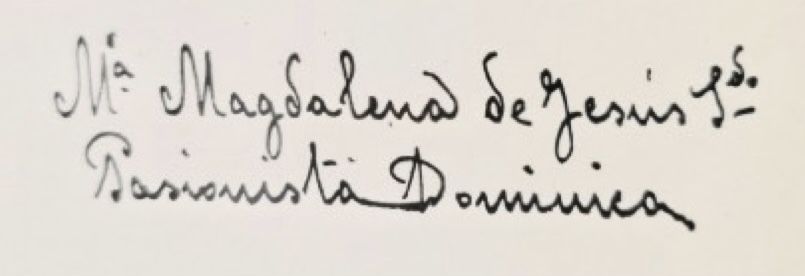 Mª Magdalena de Jesús Sdo.
Pasionista Dominica